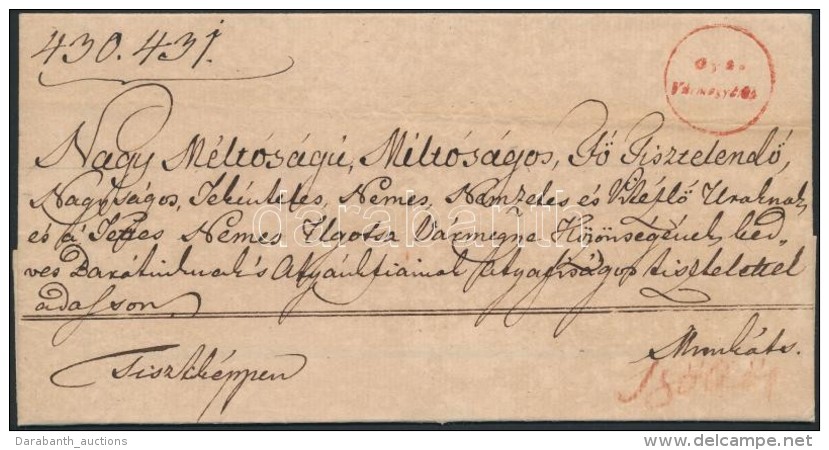 430. 431.
Vármegyétől
Nagy Méltóságú, Méltóságos, Fő Tisztelendő,
Nagyságos, Tekéntetes, Nemes, Nemzetes és Vitézlő Uraknak,
és a' Tettes Nemes Ugotsa Vármegye Közönségének, ked-
ves Barátinknak 's Atyánkfiainak atyafiságos tisztelettel
adasson.
Tisztképpen
Munkáts.
darabanth
Darabanth_auctions
delcampe.net